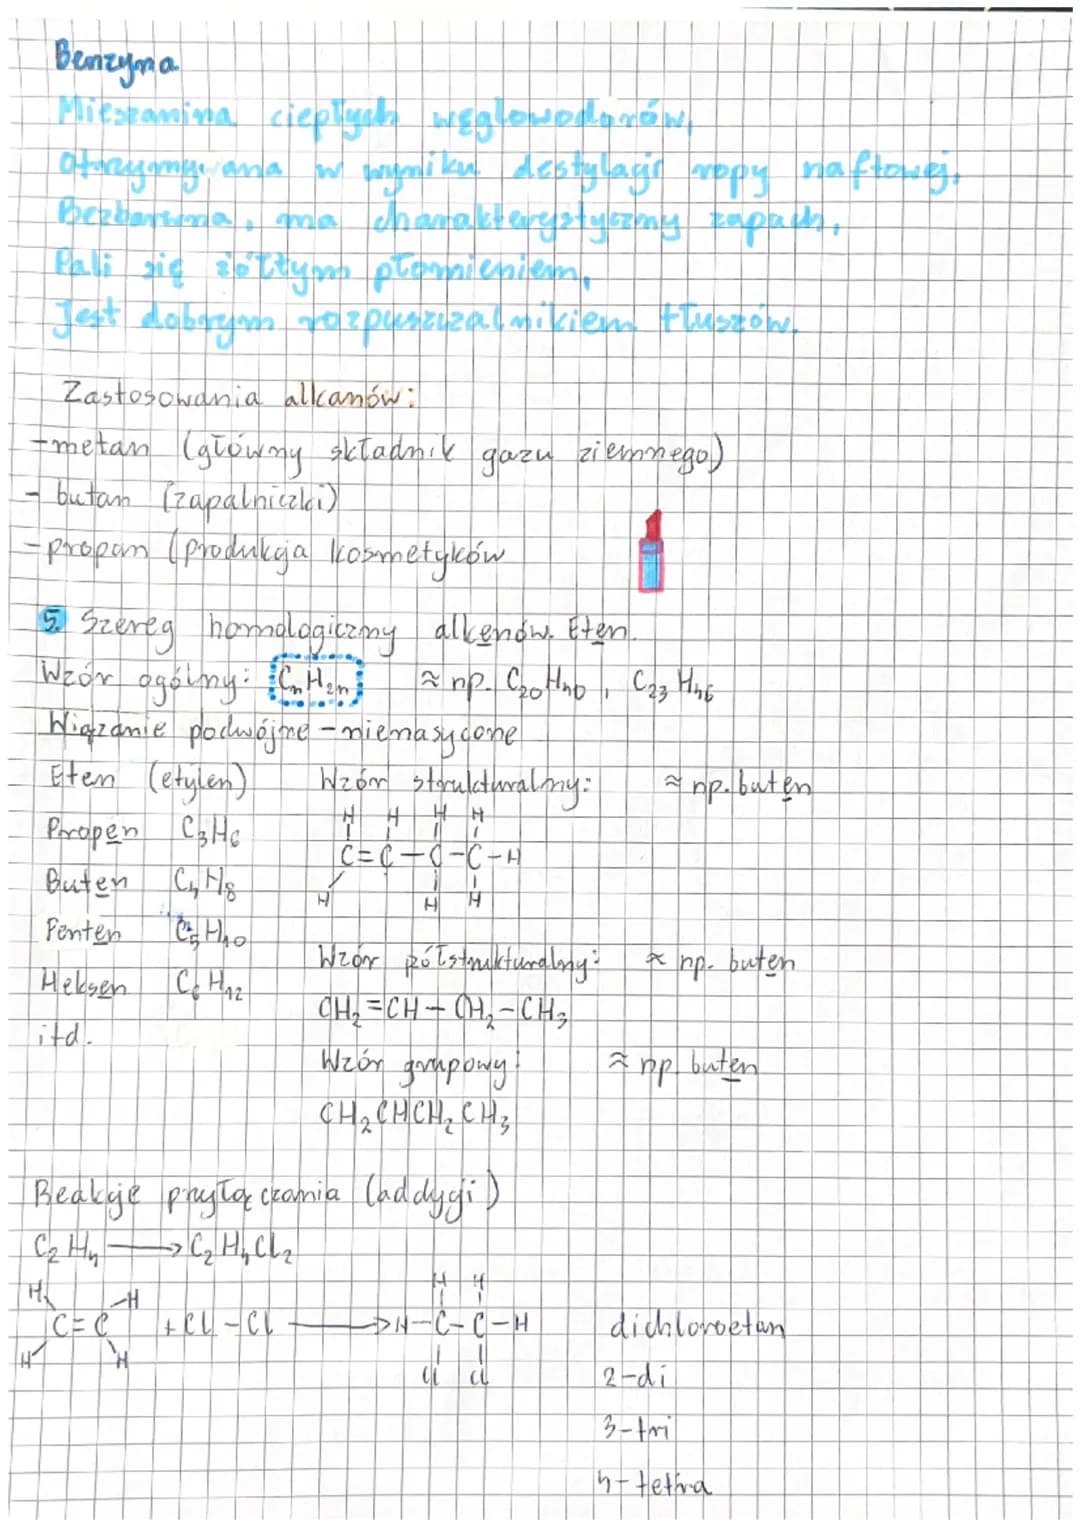 Benzyna
Mieszanina ciepłych węglowodorów,
otrzymywana w wyniku destylagi ropy naftowej.
Bezbarwna, ma charakterystyczny zapach,
Pali się żółtym płomieniem,
Jest dobrym rozpuszczalnikiem tłuszów.
Zastosowania alkanów:
-metan (główny składnik gazu ziemnego)
- butan (zapalniczki)
-propan (produkcja kosmetyków
5. Szereg homologiczny alkenów. Eten.
Wzór ogólny: CnH2n ≈ np. C20H40, C23H46
Wiązanie podwójne - nienasycone
Eten (etylen) Wzór strukturalny: ≈ np. buten
Propen C3H6
H H H H
C=C-C-C-H
Buten C4H8
H H H
Penten C5H10
Wzór półstrukturalny: ≈ np. buten
Heksen C6H12
CH2=CH-CH2-CH3
itd.
Wzór grupowy: ≈ np. buten
CH2CHCH2CH3
Reakcje przyłączania (addycji)
C2H4 → C2H4Cl2
H H H H
C=C + Cl-Cl → H-C-C-H dichloroetan
H H Cl Cl
2-di
3-tri
4-tetra